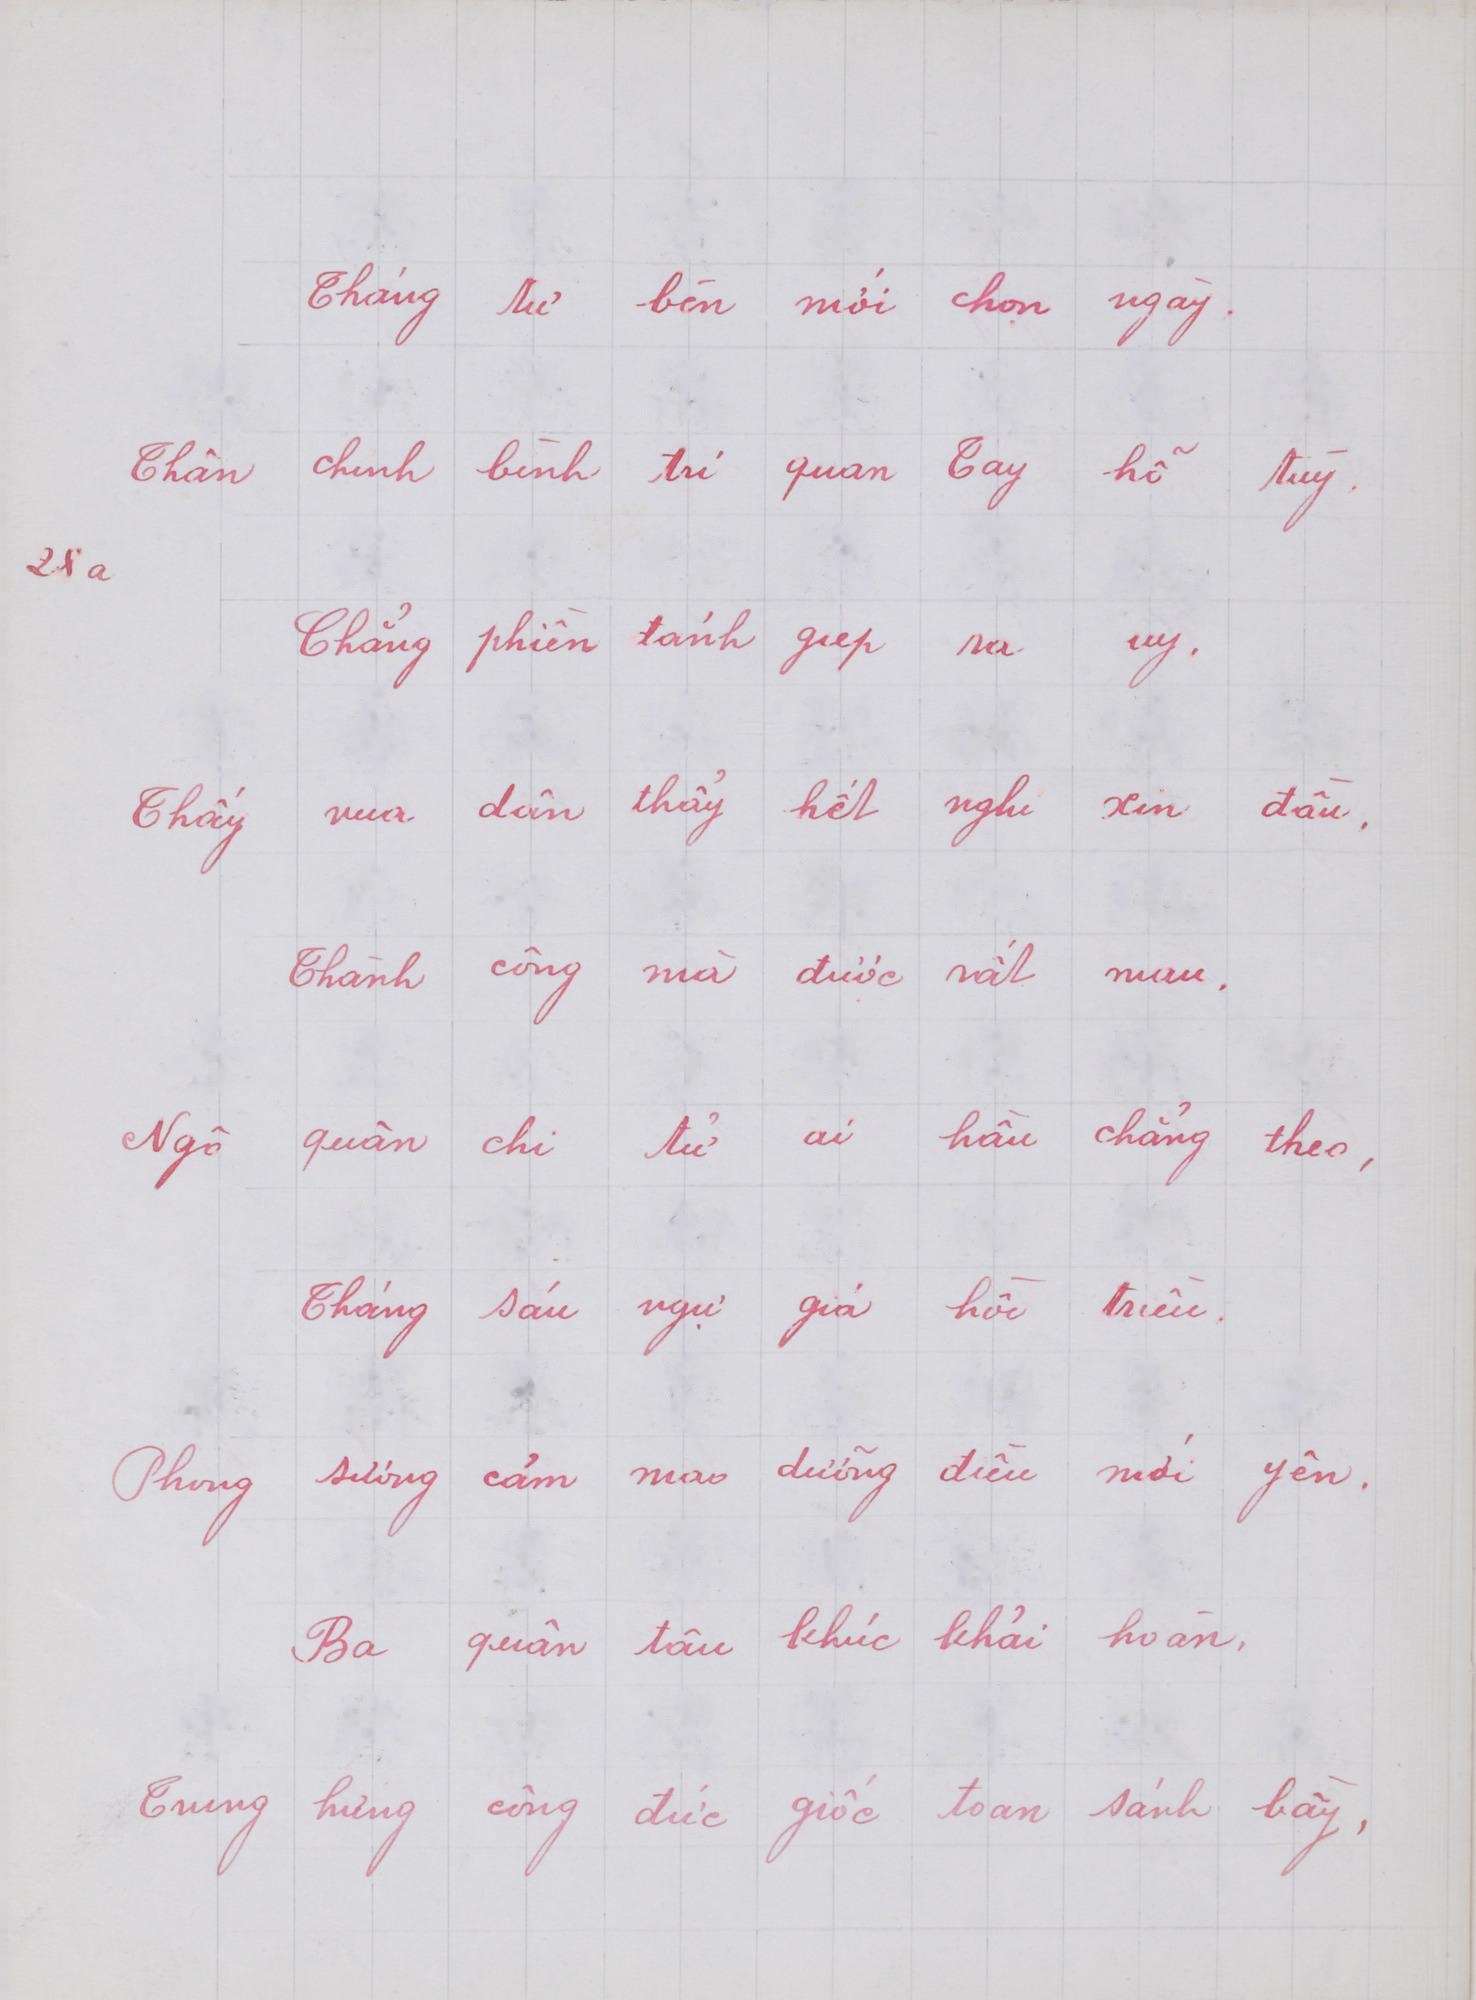 Tháng tư bèn mới chọn ngày.
Thân chinh bình trị quan Tay hỗ tùy.
28a
Chẳng phiền tánh giẹp ra uy.
Thấy vua dân thảy hết nghi xin đầu.
Thành công mà được rất mau.
Ngô quân chi tử ai hầu chẳng theo,
Tháng sáu ngự giá hồi triều.
Phong sương cảm mạo dưỡng điều mới yên.
Ba quân tâu khúc khải hoàn.
Trung hưng công đức giốc toan sánh bầy,